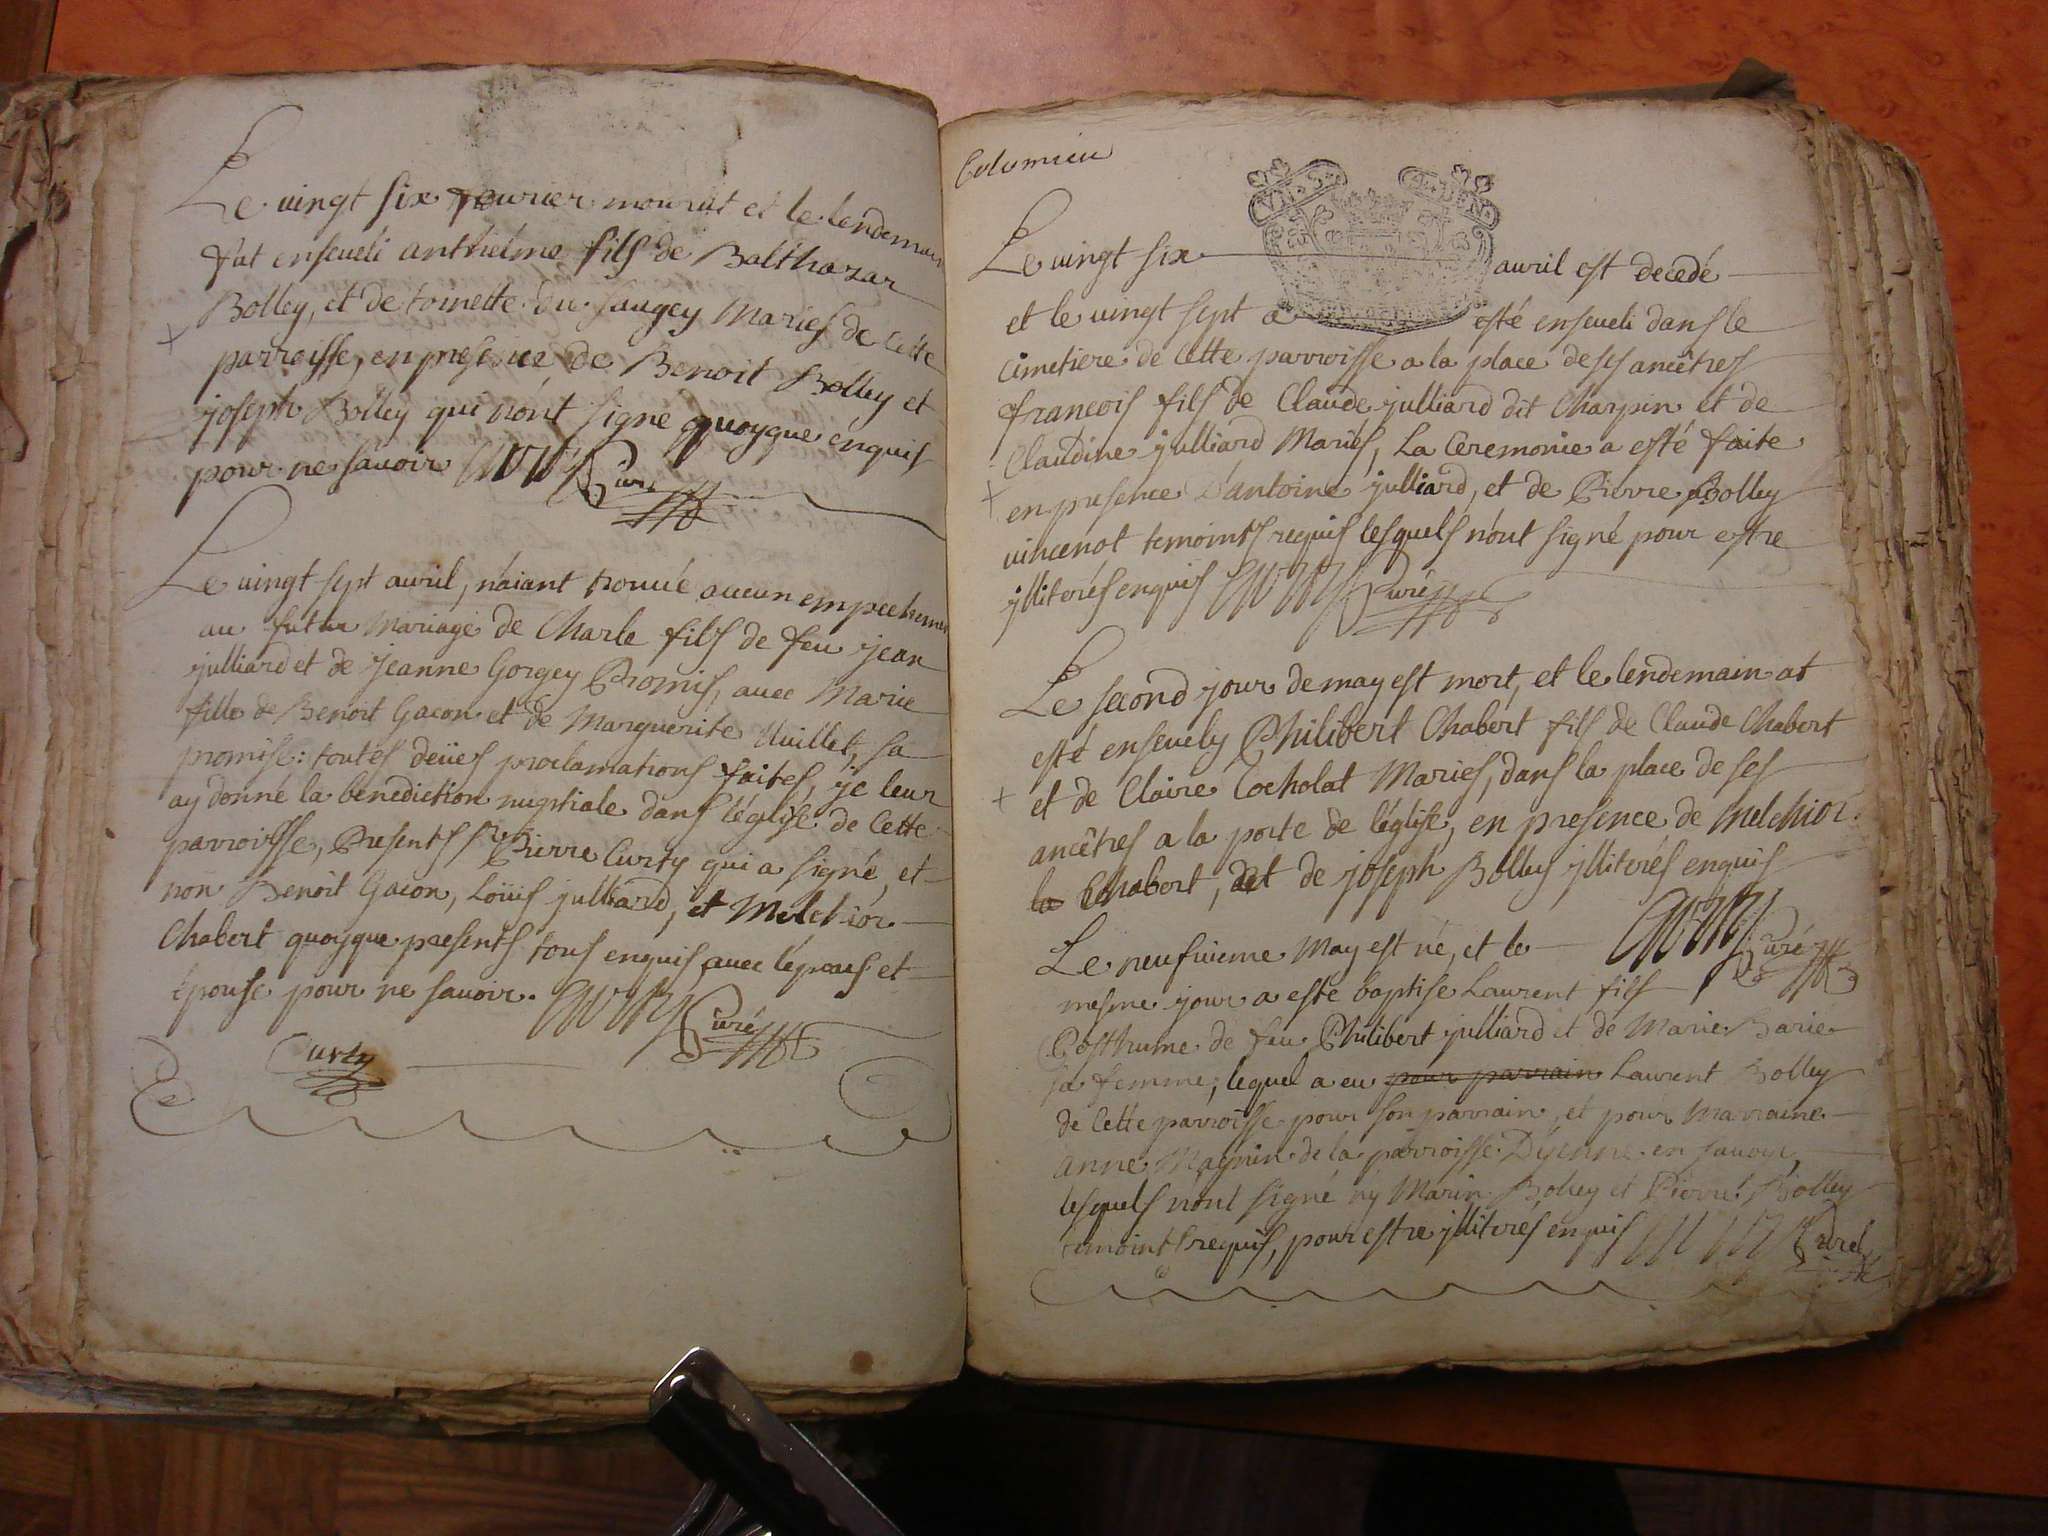 Le vingt six fevrier mourut et le lendemain
fut enseveli anthelme fils de Balthazar
Bolley, et de toinette du saugey Mariés de cette
parroisse, en presence de Benoit Bolley et
joseph Bolley qui n'ont signé quoyque enquis
pour ne savoir Curé
Le vingt sept avril, n'aiant trouvé aucun empechement
au futur Mariage de Charle fils de feu jean
julliard et de jeanne Gorgey Promis, avec Marie
fille de Benoit Gacon et de Marguerite Vuillet, sa
promise: toutes deües proclamations faites, je leur
ay donné la benediction nuptiale dans l'église de cette
parroisse, Presents sr Pierre Curty qui a signé, et
non Benoit Gacon, Loüis julliard, et Melchior
Chabert quoyque presents tous enquis avec l'epous et
épouse pour ne savoir. Curé
Curty
Colomieu
Le vingt six avril est decedé
et le vingt sept a esté enseveli dans le
cimetiere de cette parroisse a la place de ses ancêtres
francois fils de Claude julliard dit Charpin et de
Claudine julliard Mariés, La Ceremonie a esté faite
en presence d'antoine julliard, et de Pierre Bolley
vincenot temoints requis lesquels n'ont signé pour estre
jlliterés enquis Curé
Le second jour de may est mort, et le lendemain at
esté ensevely Philibert Chabert fils de Claude Chabert
et de Claire Cocholat Mariés, dans la place de ses
ancêtres a la porte de l'église, en presence de Melchior
la Chabert, et de joseph Bolley jlliterés enquis
Curé
Le neufvieme May est né, et le
mesme jour a esté baptisé Laurent fils
Posthume de feu Philibert julliard et de Marie Barie
sa femme, lequel a eu pour parrain Laurent Bolley
de cette parroisse pour son parrain, et pour Marraine
anne Magnin de la parroisse D'yenne en savoie,
lesquels n'ont signé ny Marin Bolley et Pierre Bolley
temoints requis, pour estre jlliterés enquis Curé